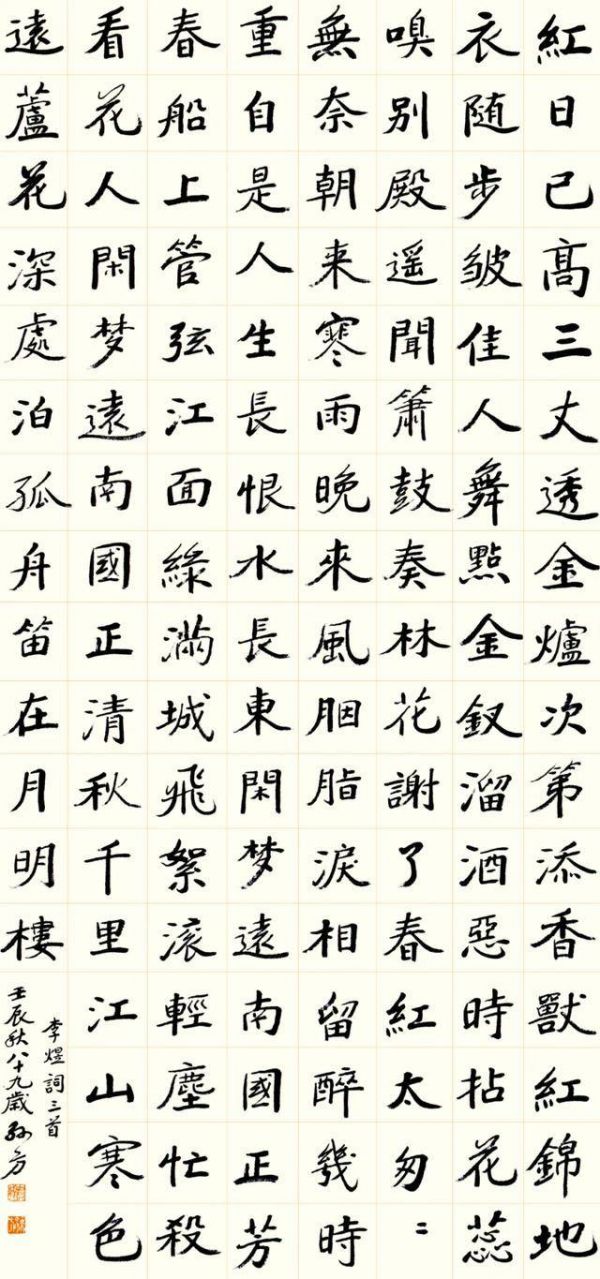 紅日已高三丈透金爐次第添香獸紅錦地
衣随步皱佳人舞點金釵溜酒惡時拈花蕊
嗅别殿遥聞簫鼓奏林花謝了春紅太匆〻
無奈朝来寒雨晚來風胭脂淚相留醉幾時
重自是人生長恨水長東閑梦遠南國正芳
春船上管弦江面綠滿城飛絮滾輕塵忙殺
看花人閑梦遠南國正清秋千里江山寒色
遠蘆花深處泊孤舟笛在月明樓
李煜詞三首
壬辰秋八十九歲孙方